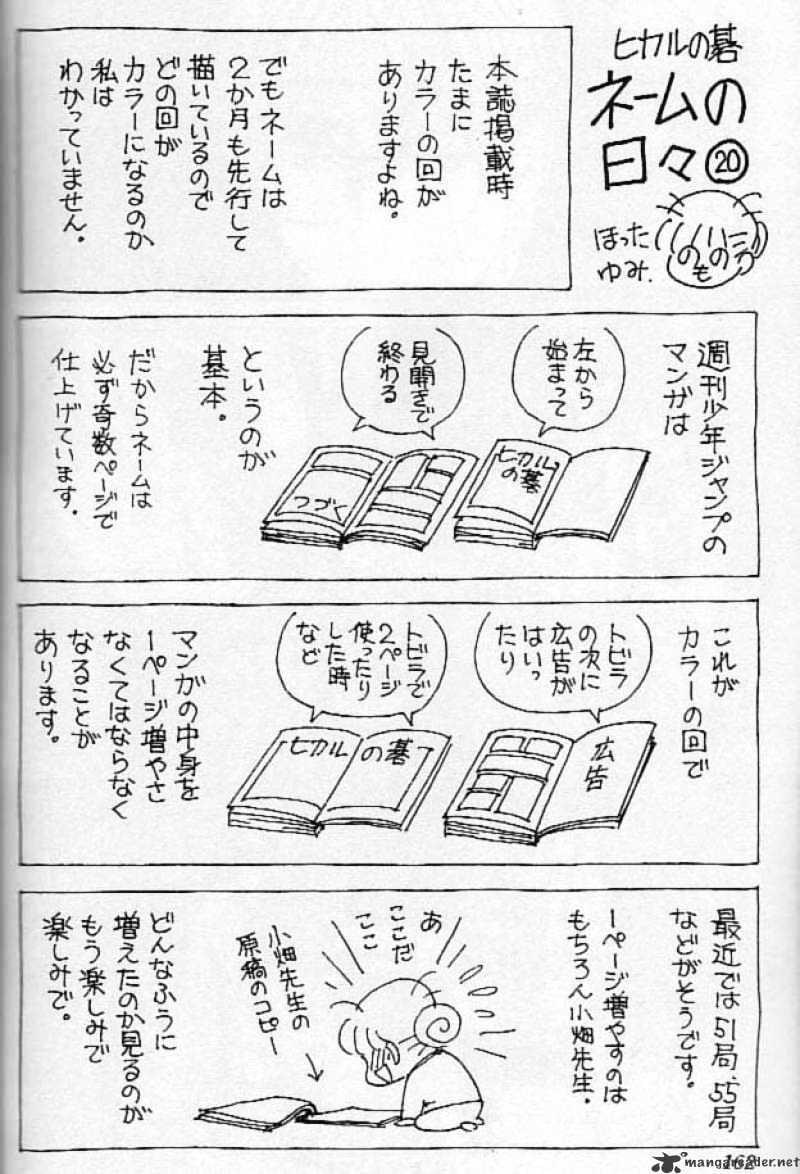 ヒカルの碁
ネームの
日々⑳
ほった
ゆみ.
本誌掲載時
たまに
カラーの回が
ありますよね。
でもネームは
2か月も先行して
描いているので
どの回が
カラーになるのか
私は
わかっていません。
週刊少年ジャンプの
マンガは
左から
始まって
ヒカル
の碁
見開きで
終わる
つづく
というのが
基本。
だからネームは
必ず奇数ページで
仕上げています.
これが
カラーの回で
トビラ
の次に
広告が
はいっ
たり
広告
トビラで
2ページ
使ったり
した時
など
ヒカルの碁
マンガの中身を
1ページ増やさ
なくてはならなく
なることが
あります。
最近では51局、55局
などがそうです。
1ページ増やすのは
もちろん小畑先生.
あ
ここだ
ここ
小畑先生の
原稿のコピー
どんなふうに
増えたのか見るのが
もう楽しみで
楽しみで。
mangareader.net